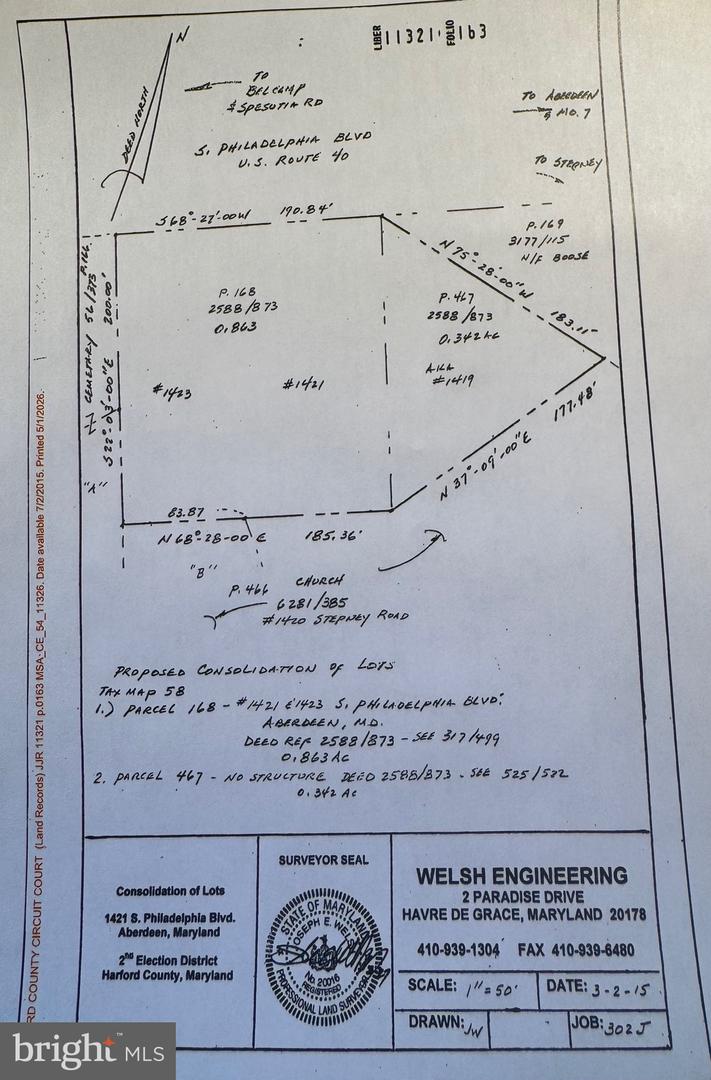 LIBER 11321 FOLIO 163
N
DEED NORTH
TO
BELCAMP
& SPESUTIA RD
TO ABERDEEN
& MO. 7
S. PHILADELPHIA BLVD
U.S. ROUTE 40
TO STEPNEY
S68°-27'-00W 190.84'
P.169
3177/115
N/F BOOSE
N 75°-28'-00"W
183.11'
P.166
CEMETARY 56/375
S22°-03'-00"E 200.00'
P. 168
2588/873
0.863
P. 467
2588/873
0.342 AC
AKA
#1419
#1423
#1421
177.48'
N 37°-09'-00"E
"A"
83.87
N 68°-28-00 E 185.36'
"B"
P. 466 CHURCH
6281/385
#1420 STEPNEY ROAD
PROPOSED CONSOLIDATION OF LOTS
TAX MAP 58
1.) PARCEL 168 - #1421 & 1423 S. PHILADELPHIA BLVD.
ABERDEEN, M.D.
DEED REF 2588/873 - SEE 317/499
0.863 AC
2. PARCEL 467 - NO STRUCTURE DEED 2588/873 - SEE 525/522
0.342 AC
Consolidation of Lots
1421 S. Philadelphia Blvd.
Aberdeen, Maryland
2nd Election District
Harford County, Maryland
SURVEYOR SEAL
STATE OF MARYLAND
JOSEPH E. WELSH
No. 20016
REGISTERED
PROFESSIONAL LAND SURVEYOR
WELSH ENGINEERING
2 PARADISE DRIVE
HAVRE DE GRACE, MARYLAND 20178
410-939-1304 FAX 410-939-6480
SCALE: 1"=50'
DATE: 3-2-15
DRAWN: JW
JOB: 302J
RD COUNTY CIRCUIT COURT (Land Records) JJR 11321 p.0163 MSA_CE_54_11326. Date available 7/2/2015. Printed 5/1/2026.
bright MLS